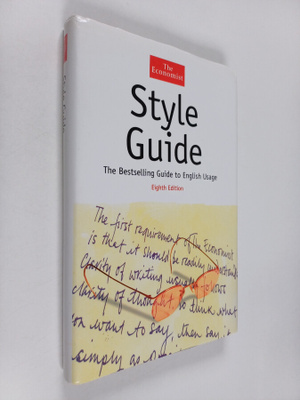 The
Economist
Style
Guide
The Bestselling Guide to English Usage
Eighth Edition
The first requirement of The Economist
is that it should be readily
Clarity of writing usually follows
clarity of thought. So think what
you want to say, then say it
simply as
Style Guide